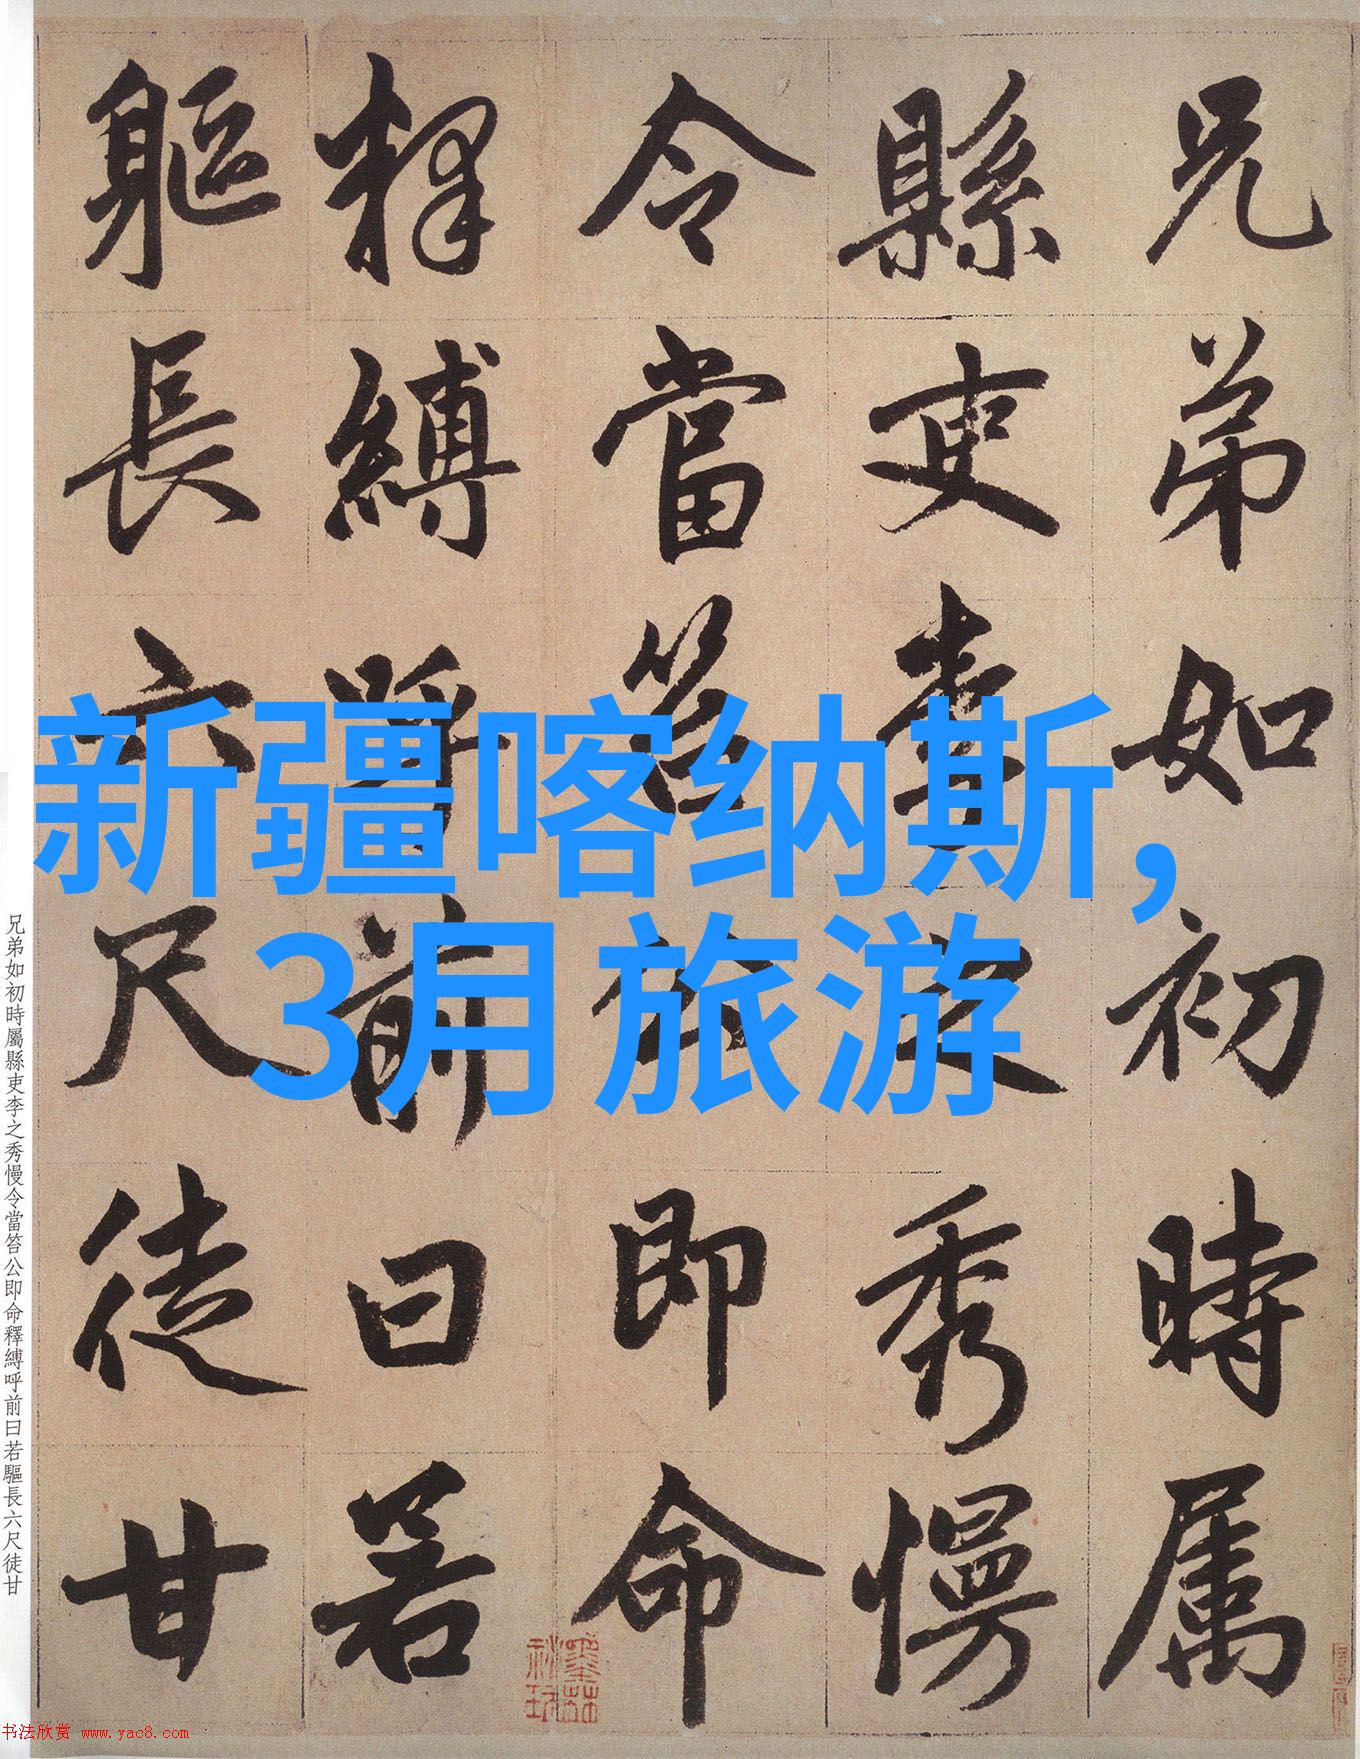 兄弟如初時属
縣吏李之秀慢
令當笞公即命
釋縛呼前曰若
軀長六尺徒甘
新疆喀纳斯,
3月旅游
兄弟如初時屬縣吏李之秀慢令當笞公即命釋縛呼前曰若驅長六尺徒甘
书法欣赏 www.yac8.com